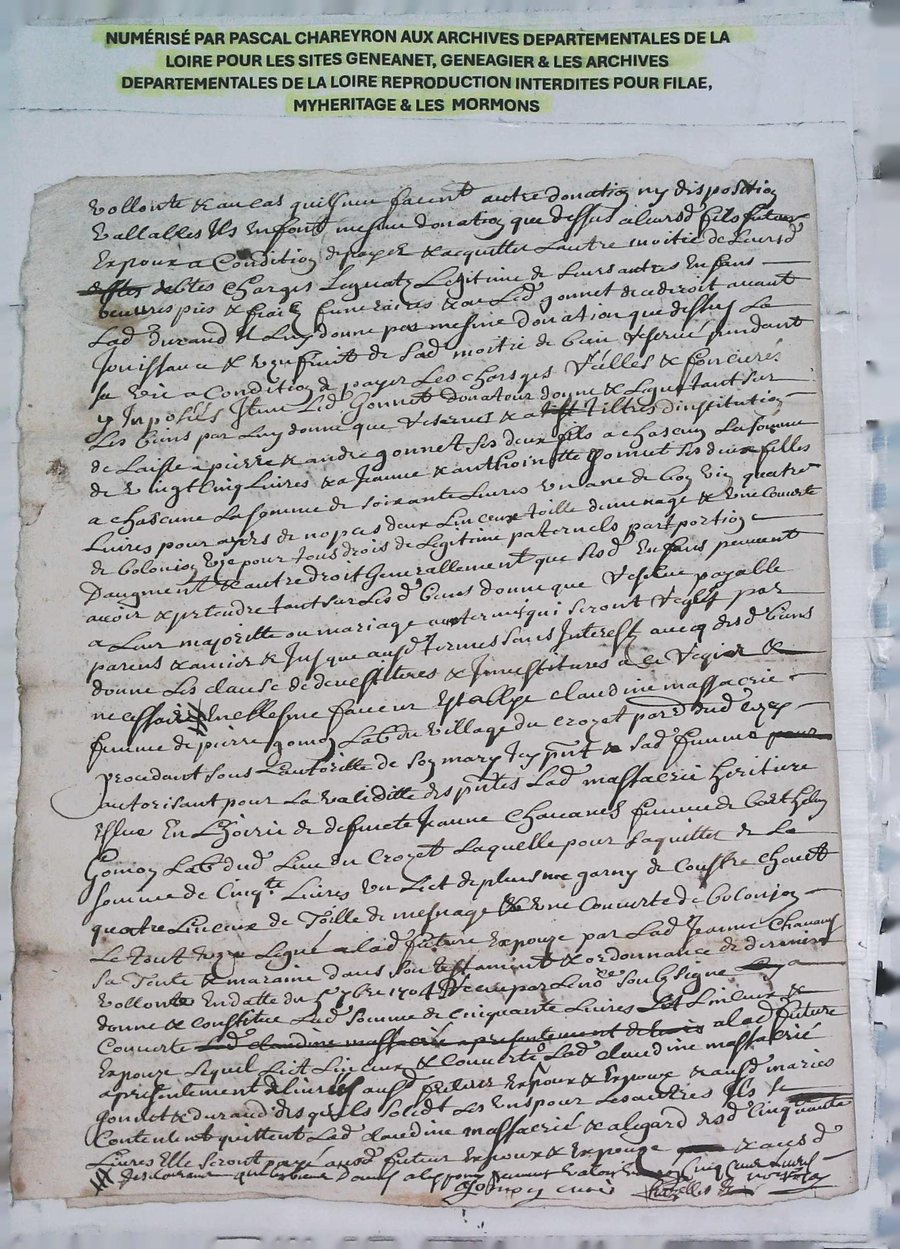 NUMÉRISÉ PAR PASCAL CHAREYRON AUX ARCHIVES DEPARTEMENTALES DE LA
LOIRE POUR LES SITES GENEANET, GENEAGIER & LES ARCHIVES
DEPARTEMENTALES DE LA LOIRE REPRODUCTION INTERDITES POUR FILAE,
MYHERITAGE & LES MORMONS
vollonte & au cas quils nen facent autre donation ny disposition
vallables ils en font mesme donation que dessus a leursd fils futeur
Expoux a Condition de payer & acquitter lautre moitie de leursd
debtes charges leguatz legitime de leurs autres Enfans
oeuvres pies & fraiz funeraires & ou led gonnet decederoit avant
lad durand il luy donne par mesme donation que dessus la
Jouissance & usuffruit de sad moitie de bien reservé pendant
sa vie a Condition de payer les charges & foncieres
y Imposées Item led Gonnet donatour donne & legue tant sur
les biens par luy donne que reservés & a tiltres dinstitution
de laisse a pierre & andre gonnet ses deux fils a chascun la somme
de vingt cinq livres & a Jeanne & anthoinette gonnet ses deux filles
a chascune la somme de soixante livres un ane de bon vin quatre
livres pour ayses de nopces deux linceux toille de menage & une Couverte
de bolonion uze pour tous drois de legitime paternels part portion
Daugment & autre droit Generallement que sesd Enfans peuvent
avoir & pretendre tant sur lesd biens donne que reservé payable
a leur majoritte ou mariage aux termes qui seront reglés par
parens & amis & Jusque ausd termes sans Interest avec desd biens
donne les clause de devestitures & Investitures a ce requis &
necessaires En cette mesme faveur Establye claudine massacrié
femme de pierre gomon lab du village du crozet par d dud
procedant sous lautoritte de son mary Icy pnt & sad femme
autorisant pour la validitte des pntes lad massacrié heritiere
En lhoirie de deffuncte Jeanne Chavanes femme de barthelmy
Gomon lab dud lieu du Crozet laquelle pour saquitter de la
somme de Cinqte livres un lict de plume garny de Coussere chevet
quatre linceux de toille de mesnage & une Couverte de bolonion
le tout uze legué a lad future Expouze par lad Jeanne Chavanes
sa Tente & maraine dans son testament & ordonnance de derniere
vollonte En datte du 7bre 1704 receu par le nore soubsigne a
donne & constitue lad somme de cinquante livres lict linceux &
Couverte lad claudine massacrié apresentement a lad future
Expouze lequel lict linceux & couverte lad claudine massacrié
apresentement delivrés ausd futeur Expoux & Expouze & ausd mariés
gonnet & durand desquels solidt les uns pour les autres Ils se
Contentent quittent lad claudine massacrié & a legard desd Cinquante
livres Elle seront payé ausd futeur Expoux & Expouze & ausd